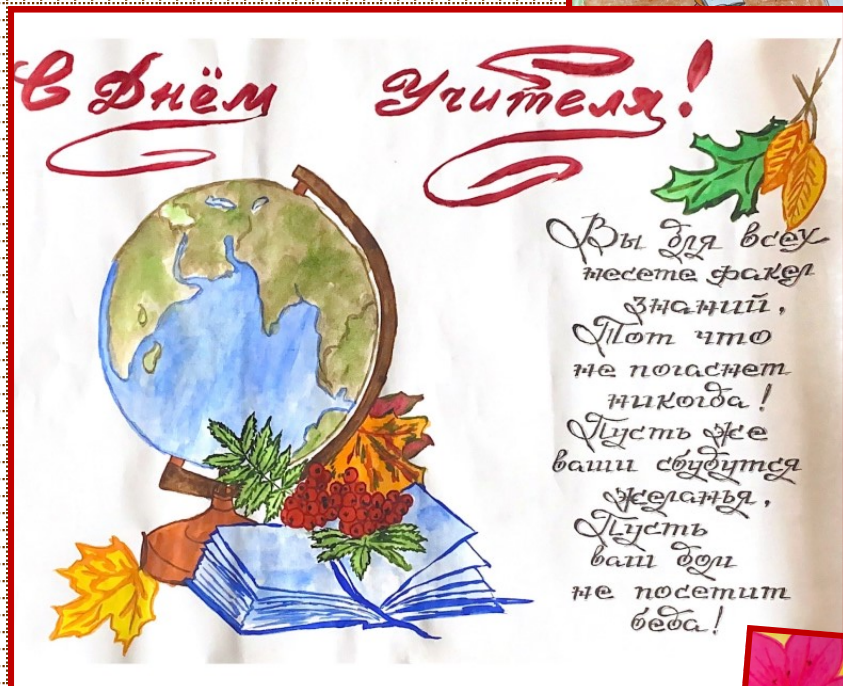 С Днём Учителя!
Вы для всех
несете факел
знаний,
Тот что
не погаснет
никогда!
Пусть же
ваши сбудутся
желанья,
Пусть
ваш дом
не посетит
беда!